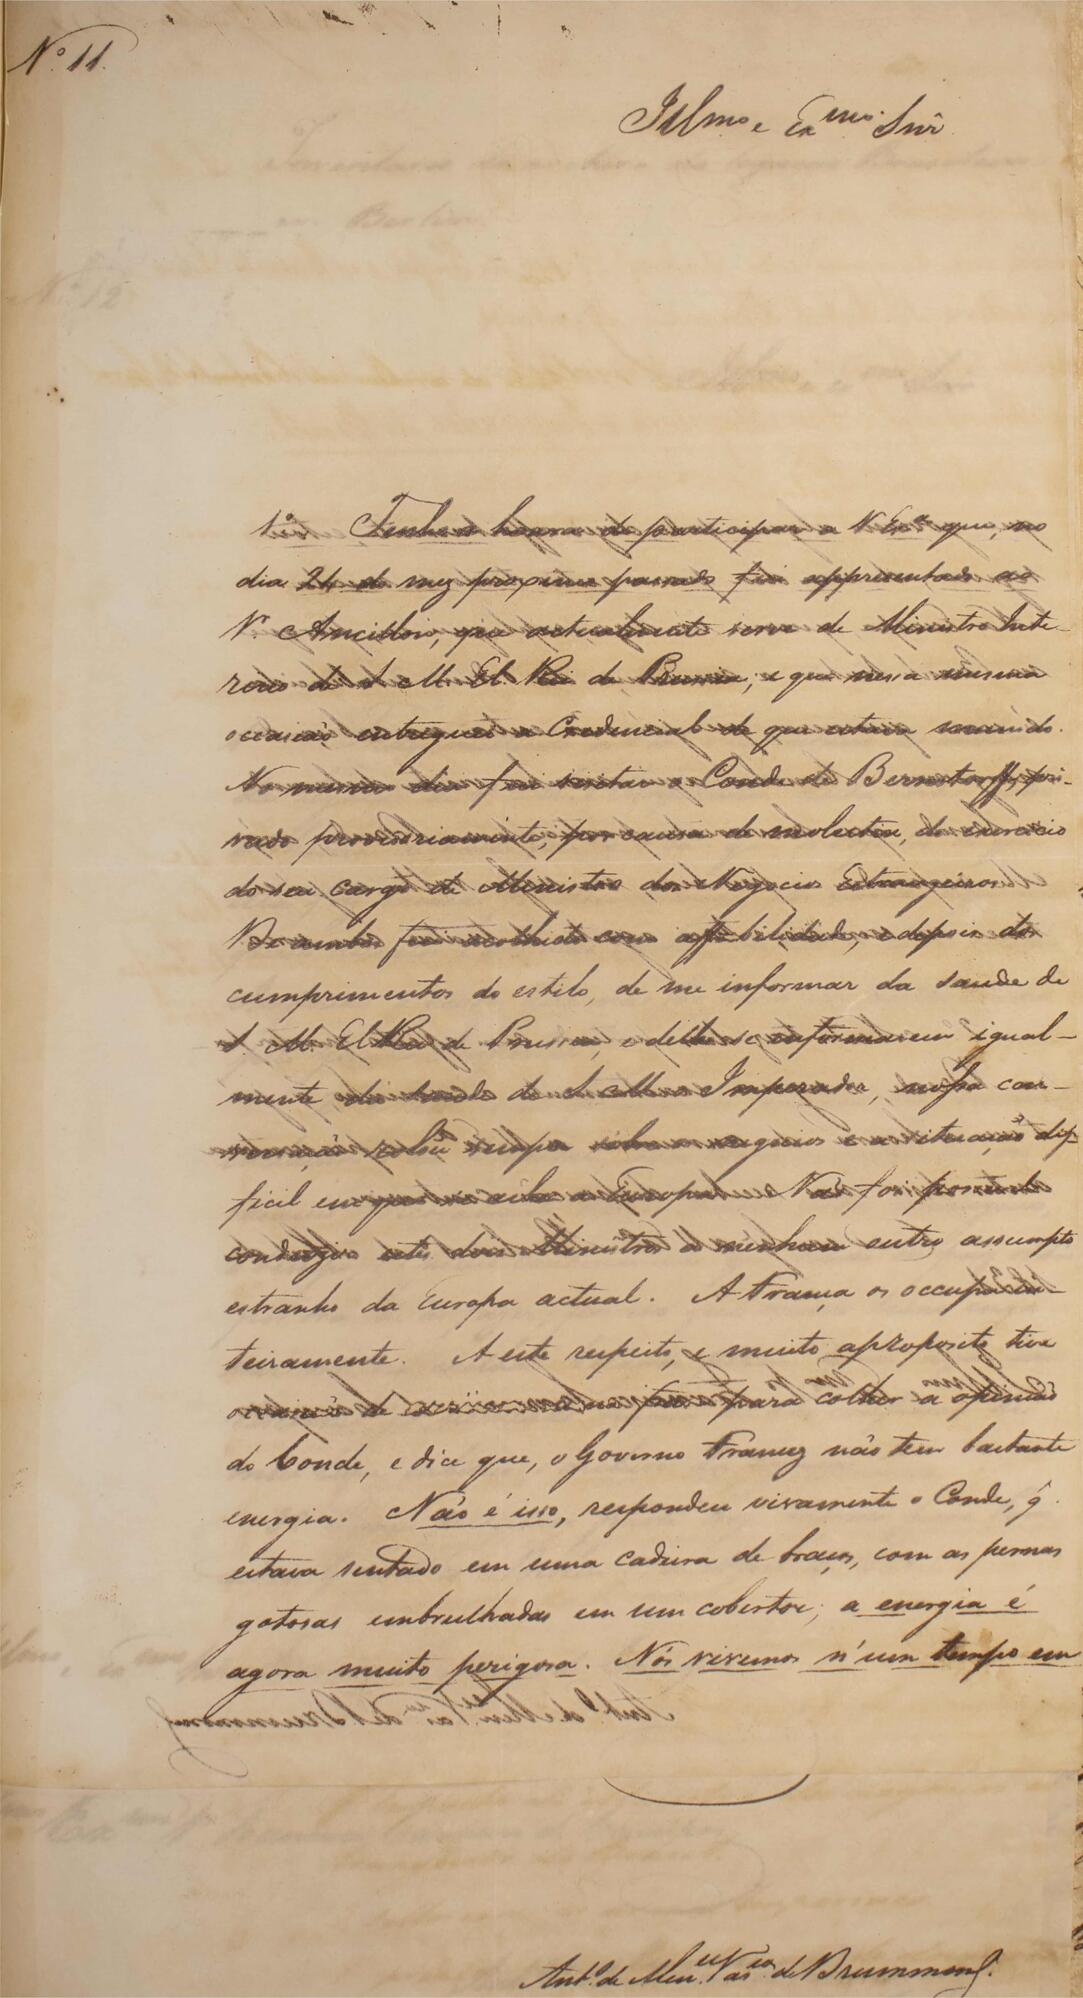 Nº 11.
Illmo e Exmo Snr
1º Tenho a honra de participar a V Exª que, no
dia 24 do mez proximo passado fui appresentado ao
Nr Ancillon, que actualmente serve de Ministro Inte-
rino de S M. El Rei de Prussia; e que nessa mesma
occasião entreguei a Credencial de que estava munido.
No mesmo dia fui visitar o Conde de Bernstorff, pri-
vado provisoriamente, por causa de molestia, do exercicio
do seu cargo de Ministro dos Negocios Estrangeiros.
De ambos fui acolhido com affabilidade, e depois dos
cumprimentos do estilo, de me informar da saude de
S. M. El Rei de Prussia, e delles se informarem igual-
mente da saude de S M o Imperador, nossa con-
versação rolou sempre sobre os negocios e a situação dif-
ficil em que se acha a Europa. Não foi possivel
conduzir estes dois Ministros a nenhum outro assumpto
estranho da Europa actual. A França os occupa in-
teiramente. A este respeito, e muito aproposito tive
occasião de para colher a opinião
do Conde, e dice que, o Governo Francez não tem bastante
energia. Não é isso, respondeu vivamente o Conde, q̂.
estava sentado em uma cadeira de braços, com as pernas
gotosas embrulhadas em um cobertor; a energia é
agora muito perigosa. Nós vivemos n'um tempo em
Antº. de Menes Vasco de Drummond.